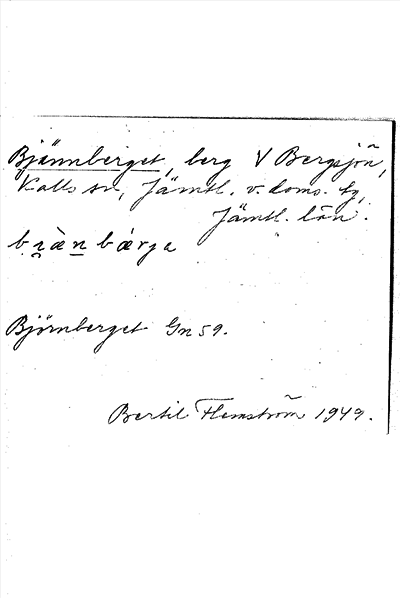 Bjännberget, berg V Bergsjön,
Kalls sn, Jämtl. v. doms. tg,
Jämtl. län.
bi̯àn bárga
Björnberget Gn 59.
Bertil Flemström 1949.